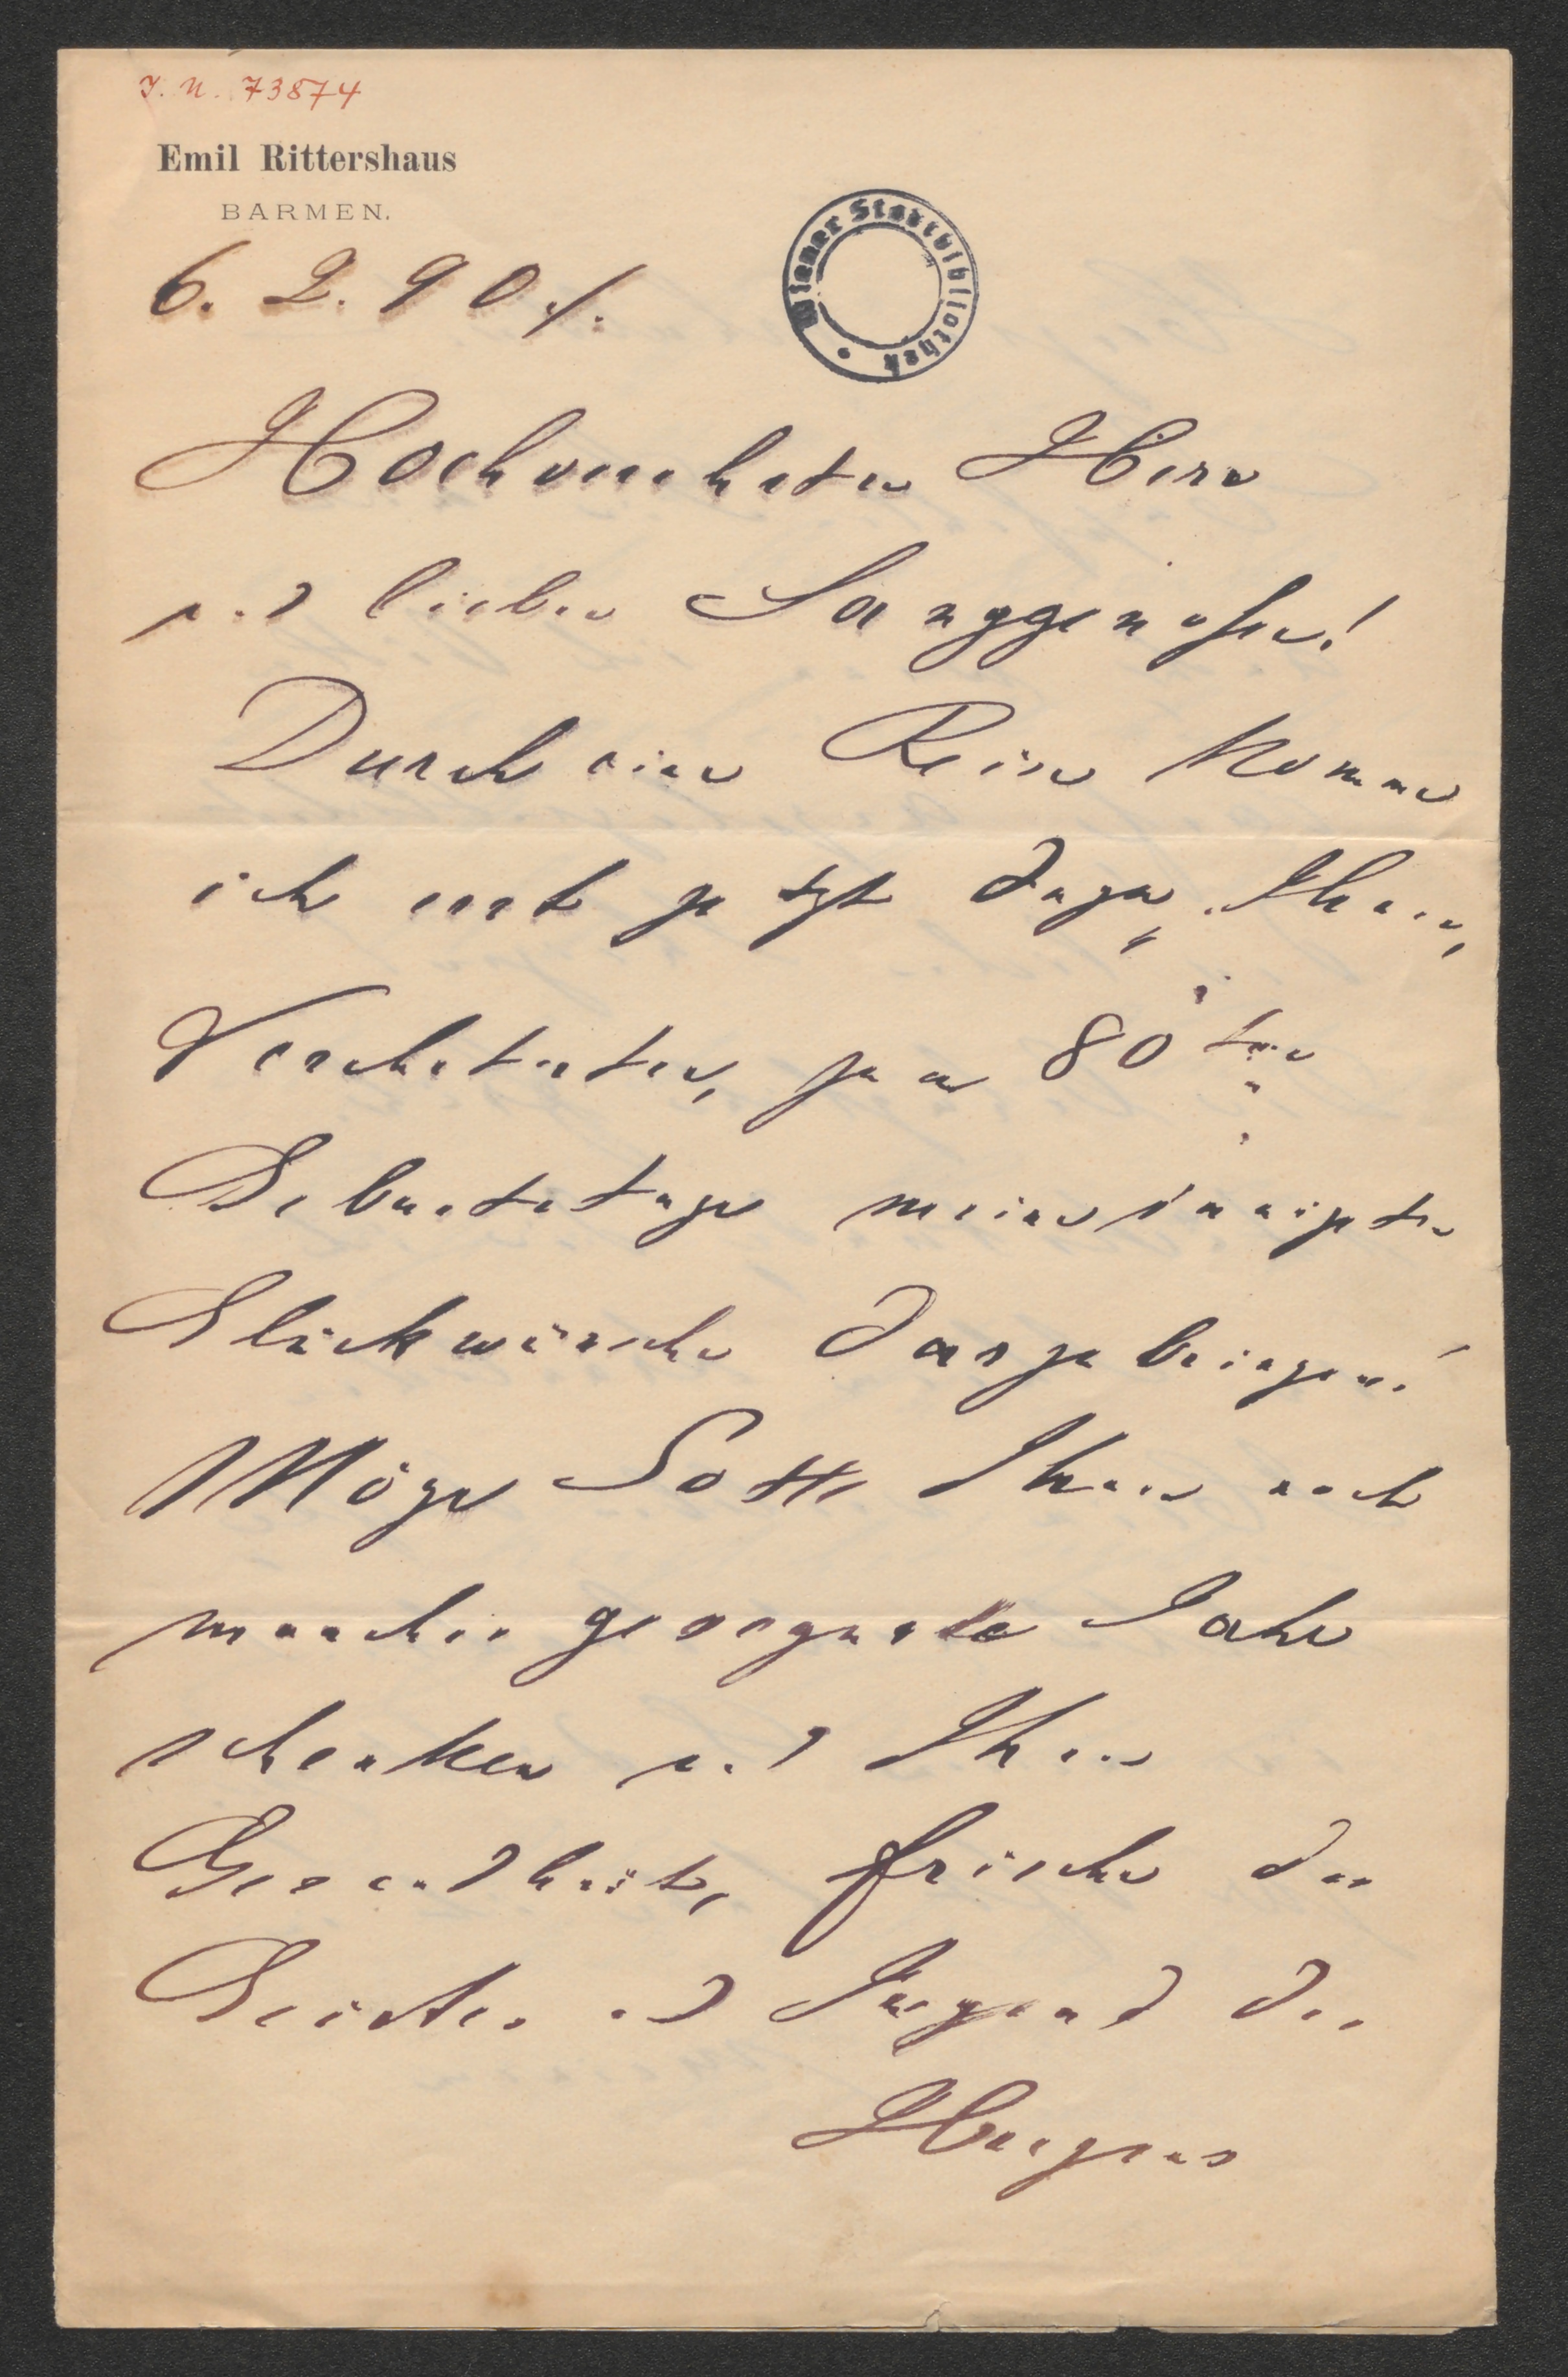 J. N. 73874
Emil Rittershaus
BARMEN.
Wiener Stadtbibliothek
6. 2. 90 /.
Hochverehrter Herr
und lieber Sanggenosse!
Durch eine Reise komme
ich erst jetzt dazu, Ihnen,
Verehrtester, zum 80ten
Geburtstage meine innigsten
Glückwünsche darzubringen!
Möge Gott Ihnen noch
manches gesegnete Jahr
schenken und Ihnen
Gesundheit, Frische des
Geistes und Jugend des
Herzens